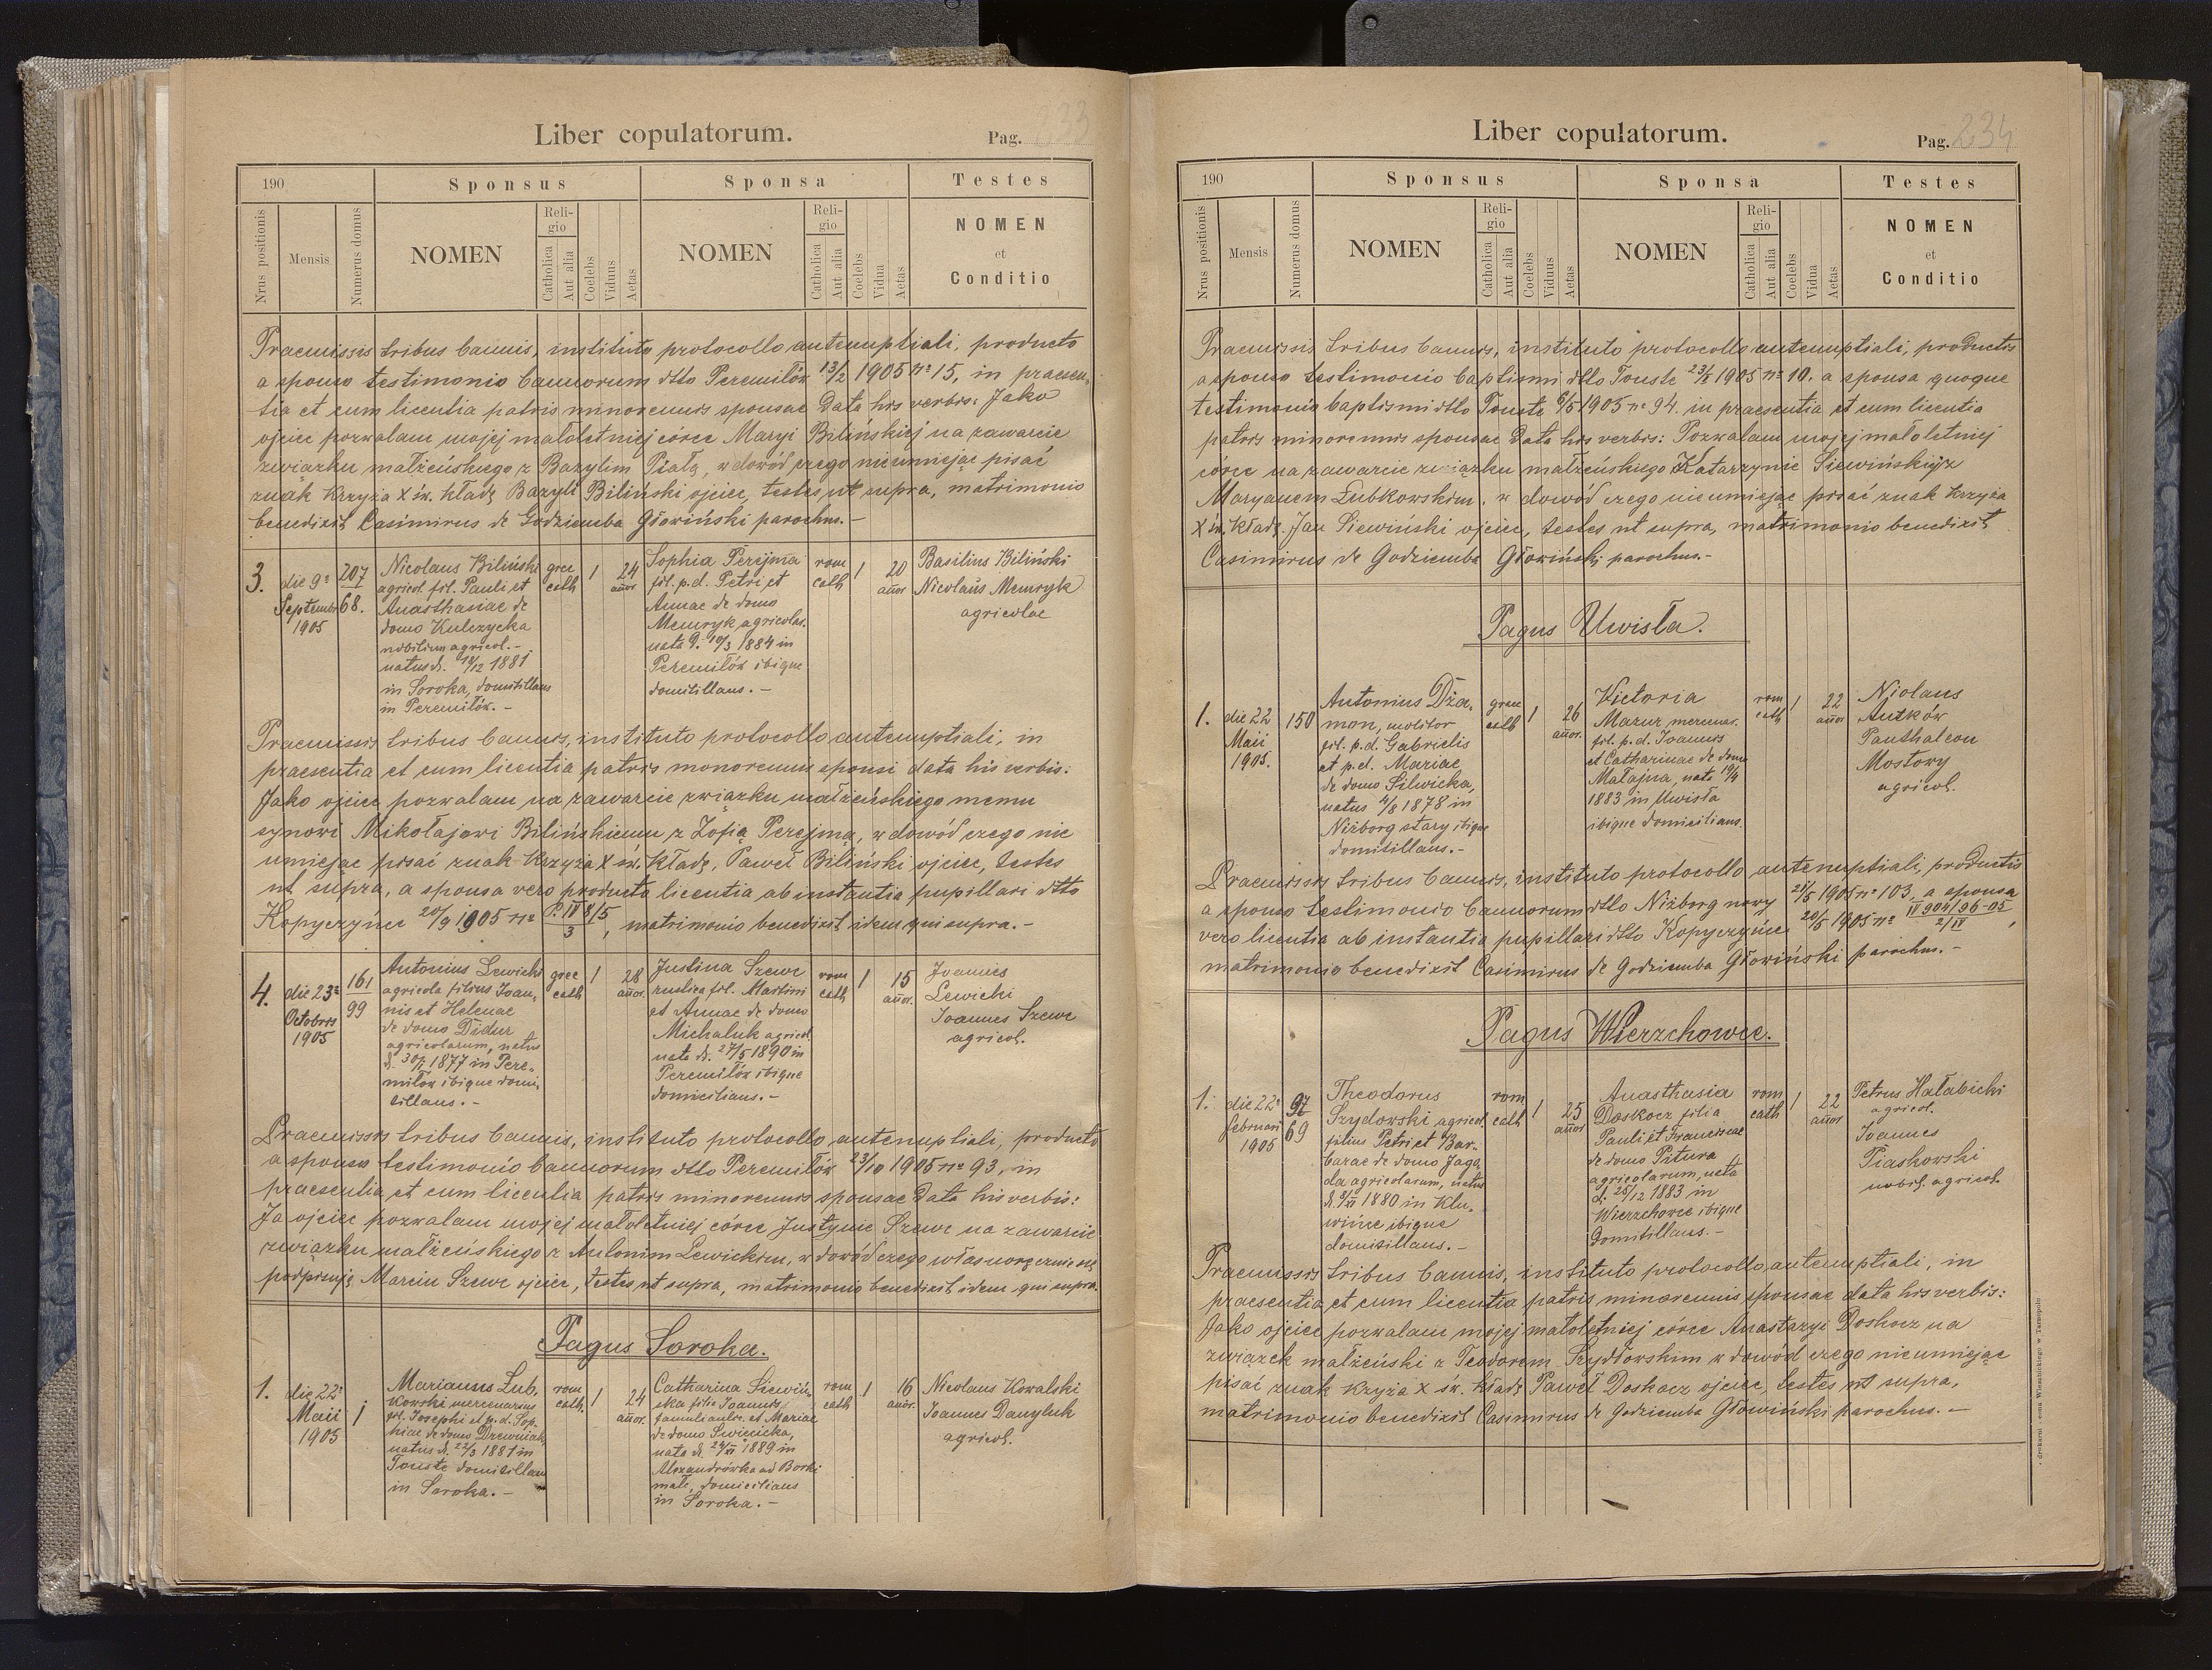 Liber copulatorum.
Pag. 233
190
Sponsus
Sponsa
Testes
Nrus positionis
Mensis
Numerus domus
NOMEN
Religio
Catholica
Aut alia
Coelebs
Viduus
Aetas
NOMEN
Religio
Catholica
Aut alia
Coelebs
Vidua
Aetas
NOMEN
et
Conditio
Praemissis tribus bannis, instituto protocollo antenuptiali, producto
a sponso testimonio bannorum dtto Peremiłów 13/2 1905 nº 15, in praesen-
tia et cum licentia patris minorennis sponsae data his verbis: Jako
ojciec pozwalam mojej małoletniej córce Maryi Bilińskiej na zawarcie
związku małżeńskiego z Bazylim Piałą, w dowód czego nie umiejąc pisać
znak krzyża X św. kładę Bazyli Biliński ojciec, testes ut supra, matrimonio
benedixit Casimirus de Godziemba Głowiński parochus.-
3.
die 9ª
Septembr
1905
207
68.
Nicolaus Biliński
agricol. fil. Pauli et
Anasthasiae de
domo Kulczycka
nobilium agricol.-
natus d. 19/12 1881
in Soroka, domitillans
in Peremiłów.-
grec
cath
1
24
añor
Sophia Perejma
fil. p.d. Petri et
Annae de domo
Memryk agricolar.
nata d. 19/3 1884 in
Peremiłów ibique
domitillans.-
rom
cath
1
20
añor
Basilius Biliński
Nicolaus Memryk
agricolae
Praemissis tribus bannis, instituto protocollo antenuptiali, in
praesentia et cum licentia patris monorennis sponsi data his verbis:
Jako ojciec pozwalam na zawarcie związku małżeńskiego memu
synowi Mikołajowi Bilińskiemu z Zofią Perejmą, w dowód czego nie
umiejąc pisać znak krzyża X św. kładę, Paweł Biliński ojciec, testes
ut supra, a sponsa vero producta licentia ab instantia pupillari dtto
Kopyczyńce 20/9 1905 nº P. IV 8/5 / 3, matrimonio benedixit idem qui supra.-
4.
die 23ª
Octobris
1905
161
99
Antonius Lewicki
agricola filius Joan-
nis et Helenae
de domo Didur
agricolarum, natus
d. 30/1 1877 in Pere-
miłów ibique domi-
cillans.-
grec
cath
1
28
añor.
Justina Szewc
rustica fil. Martini
et Annae de domo
Michaluk agricol.
nata d. 27/5 1890 in
Peremiłów ibique
domicilians.-
rom
cath
1
15
añor.
Joannes
Lewicki
Joannes Szewc
agricol.
Praemissis tribus bannis, instituto protocollo antenuptiali, producto
a sponso testimonio bannorum dtto Peremiłów 23/10 1905 nº 93, in
praesentia et cum licentia patris minorennis sponsae data his verbis:
Ja ojciec pozwalam mojej małoletniej córce Justynie Szewc na zawarcie
związku małżeńskiego z Antonim Lewickim, w dowód czego własnoręcznie się
podpisuję Marcin Szewc ojciec, testes ut supra, matrimonio benedixit idem qui supra.
Pagus Soroka.
1.
die 22ª
Maii
1905
1
Marianus Lub-
kowski mercenarius
fil. Josephi et p.d. Sop-
hiae de domo Drewniak,
natus d. 22/3 1881 in
Touste domicillans
in Soroka.-
rom
cath.
1
24
añor.
Catharina Siewiń-
ska filia Joannis
famuli aulic. et Mariae
de domo Swinicka,
nata d. 24/XI 1889 in
Alexandrówka ad Borki
małe, domicilians
in Soroka.-
rom
cath
1
16
añor.
Nicolaus Kowalski
Joannes Danyluk
agricol.
Liber copulatorum.
Pag. 234
190
Sponsus
Sponsa
Testes
Nrus positionis
Mensis
Numerus domus
NOMEN
Religio
Catholica
Aut alia
Coelebs
Viduus
Aetas
NOMEN
Religio
Catholica
Aut alia
Coelebs
Vidua
Aetas
NOMEN
et
Conditio
Praemissis tribus bannis, instituto protocollo antenuptiali, productis
a sponso testimonio baptismi dtto Touste 23/5 1905 nº 10. a sponsa quoque
testimonio baptismi dtto Touste 6/5 1905 nº 94. in praesentia et cum licentia
patris minorennis sponsae data his verbis: Pozwalam mojej małoletniej
córce na zawarcie związku małżeńskiego Katarzynie Siewińskiej z
Maryanem Łubkowskim, w dowód czego nie umiejąc pisać znak krzyża
X św. kładę. Jan Siewiński ojciec, testes ut supra, matrimonio benedixit
Casimirus de Godziemba Głowiński parochus.-
Pagus Uwisła.
1.
die 22
Maii
1905.
150
Antonius Dża-
mon, molitor
fil. p.d. Gabrielis
et p.d. Mariae
de domo Silwicka,
natus 4/8 1878 in
Niżborg stary ibique
domitillans.-
grec
cath
1
26
añor.
Victoria
Mazur, mercenar.
fil. p.d. Joannis
et Catharinae de domo
Małajna, nata 19/4
1883 in Uwisła
ibique domicilians.
rom
cath
1
22
añor
Niolaus
Autków
Panthaleon
Mostowy
agricol.
Praemissis tribus bannis, instituto protocollo antenuptiali, productis
a sponso testimonio bannorum dtto Niżborg nowy 21/5 1905 nº 103, a sponsa
vero licentia ab instantia pupillari dtto Kopyczyńce 20/5 1905 nº IV 904/96-05 / 2/IV,
matrimonio benedixit Casimirus de Godziemba Głowiński parochus.-
Pagus Wierzchowce.
1.
die 22ª
februarii
1905
97
69
Theodorus
Szydowski, agricol.
filius Petri et Bar-
barae de domo Jago-
da agricolarum, natus
d. 9/XI 1880 in Klu-
wińce ibique
domicillans.-
rom
cath
1
25
añor
Anasthasia
Doskocz filia
Pauli et Franciscae
de domo Pitura
agricolarum, nata
d. 25/12 1883 in
Wierzchowce ibique
domitillans.-
rom
cath
1
22
añor
Petrus Hałabicki
agricol.
Joannes
Piaskowski
nobil. agricol.
Praemissis tribus bannis, instituto protocollo antenuptiali, in
praesentia et cum licentia patris minorennis sponsae data his verbis:
Jako ojciec pozwalam mojej małoletniej córce Anastazyi Doskocz na
związek małżeński z Teodorem Szydłowskim w dowód czego nie umiejąc
pisać znak krzyża X św. kładę Paweł Doskocz ojciec, testes ut supra,
matrimonio benedixit Casimirus de Godziemba Głowiński parochus.-